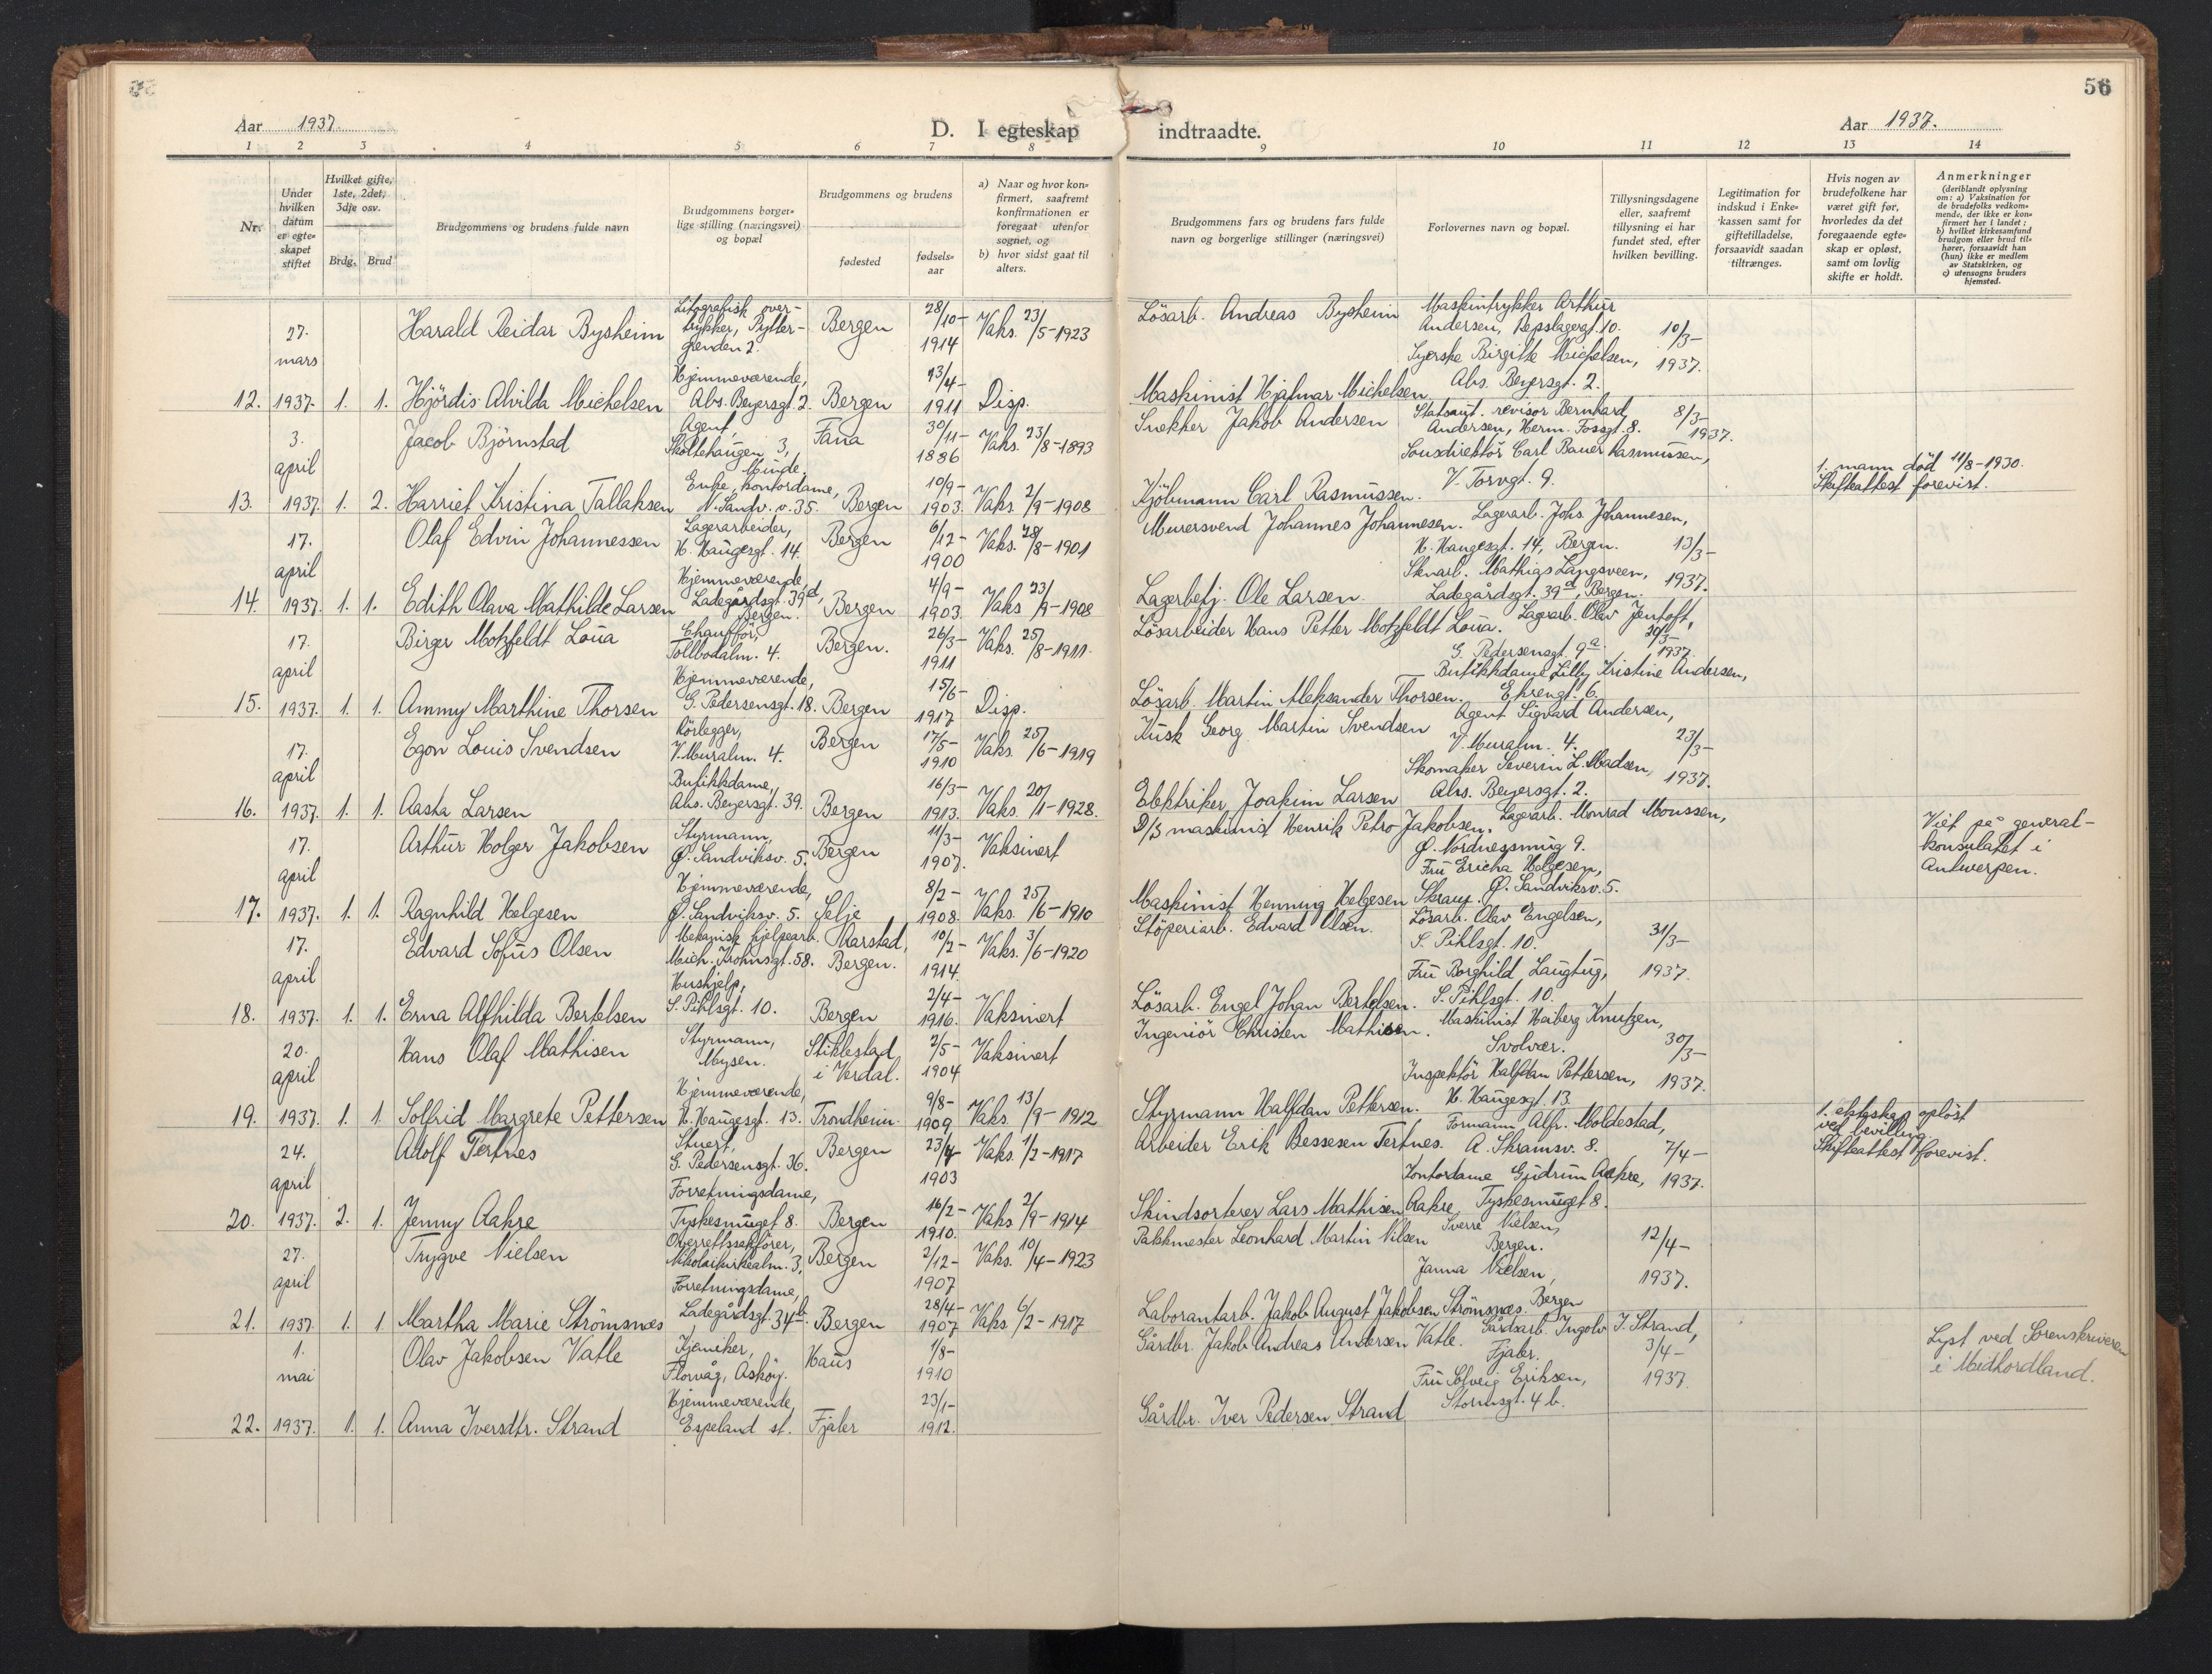 56
Aar 1937. D. I egteskap indtraadte. Aar 1937.
1 2 3 4 5 6 7 8 9 10 11 12 13 14
Nr.
Under hvilken datum er egteskapet stiftet
Hvilket gifte, 1ste, 2det, 3dje osv.
Brdg. Brud
Brudgommens og brudens fulde navn
Brudgommens borgerlige stilling (næringsvei) og bopæl
Brudgommens og brudens
fødested
fødselsaar
a) Naar og hvor konfirmert, saafremt konfirmationen er foregaat utenfor sognet, og
b) hvor sidst gaat til alters.
Brudgommens fars og brudens fars fulde navn og borgerlige stillinger (næringsvei)
Forlovernes navn og bopæl.
Tillysningsdagene eller, saafremt tillysning ei har fundet sted, efter hvilken bevilling.
Legitimation for indskud i Enkekassen samt for giftetilladelse, forsaavidt saadan tiltrænges.
Hvis nogen av brudefolkene har været gift før, hvorledes da det foregaaende egteskap er opløst, samt om lovlig skifte er holdt.
Anmerkninger
(deriblandt oplysning om: a) Vaksination for de brudefolks vedkommende, der ikke er konfirmert her i landet; b) hvilket kirkesamfund brudgom eller brud tilhører, forsaavidt han (hun) ikke er medlem av Statskirken, og c) utensogns bruders hjemsted.
27. mars
Harald Reidar Bysheim
Litografisk overtrykker, Pyttergrenden 2.
Bergen
28/10-1914
Vaks. 23/5-1923
Lösarb. Andreas Bysheim
Maskintrykker Arthur Andersen, Repslagergt. 10.
Syerske Birgitte Michelsen, Abs. Beyersgt. 2.
10/3-1937.
12. 1937. 1. 1. Hjördis Alvilda Michelsen
Hjemmeværende, Abs. Beyersgt 2.
Bergen
13/4-1911
Disp.
Maskinist Hjalmar Michelsen
3. april
Jacob Björnstad
Agent, Skoltehaugen 3, Minde.
Fana
30/11-1886
Vaks. 23/8-1893
Snekker Jakob Andersen
Statsaut. revisor Bernhard Andersen, Herm. Fossgt. 8.
Sousdirektör Carl Bauer Rasmussen, V. Torvgt. 9.
8/3-1937.
13. 1937. 1. 2. Harriet Kristina Tallaksen
Enke, kontordame, N. Sandv. v. 35.
Bergen
10/9-1903.
Vaks. 2/9-1908
Kjöbmann Carl Rasmussen.
1. mann död 11/8-1930.
Skifteattest forevist.
17. april
Olaf Edvin Johannessen
Lagerarbeider, H. Haugesgt. 14.
Bergen
6/12-1900
Vaks. 28/8-1901
Murersvend Johannes Johannesen.
Lagerarb. Johs. Johannesen, H. Haugesgt. 14, Bergen.
Skuarb. Mathias Langsveen, Ladegårdsgt. 39d, Bergen.
13/3-1937.
14. 1937. 1. 1. Edith Olava Mathilde Larsen
Hjemmeværende, Ladegårdsgt. 39d, Bergen.
Bergen
4/9-1903.
Vaks 23/9-1908
Lagerbetj. Ole Larsen.
17. april
Birger Motzfeldt Loūa
Chauffför, Tollbodalm. 4.
Bergen.
26/3-1911
Vaks. 25/8-1911.
Lösarbeider Hans Petter Motzfeldt Loūa.
Lagerarb. Olav Jentoft, G. Pedersensgt. 9a
Butikkdame Lilly Kristine Andersen, Ehrengt. 6.
20/3-1937
15. 1937. 1. 1. Ammy Marthine Thorsen
Hjemmeværende, G. Pedersensgt. 18.
Bergen
15/6-1917
Disp.
Lösarb. Martin Aleksander Thorsen.
17. april
Egon Louis Svendsen
Rörlegger, V. Muralm. 4.
Bergen
17/5-1910
Vaks. 25/6-1919
Kusk Georg Martin Svendsen
Agent Sigvard Andersen, V. Muralm. 4.
Skomaker Severin L. Madsen, Abs. Beyersgt. 2.
23/3-1937.
16. 1937. 1. 1. Aasta Larsen
Butikkdame, Abs. Beyersgt. 39.
Bergen
16/3-1913.
Vaks. 20/1-1928.
Elektriker Joakim Larsen
17. april
Arthūr Holger Jakobsen
Styrmann, Ø. Sandviksv. 5.
Bergen
11/3-1907.
Vaksinert
D/S maskinist Henrik Petro Jakobsen.
Lagerarb. Monrad Monssen, Ø. Nordnessmug 9.
Frū Ericha Helgesen, Ø. Sandviksv. 5.
Viet på generalkonsulatet i Antwerpen.
17. 1937. 1. 1. Ragnhild Helgesen
Hjemmeværende, Ø. Sandviksv. 5.
Selje
8/2-1908.
Vaks. 25/6-1910
Maskinist Henning Helgesen
17. april
Edvard Sofūs Olsen
Mekanisk hjelpearb. Mich. Krohnsgt. 58.
Bergen.
10/2-1914.
Vaks. 3/6-1920
Stöperiarb. Edvard Olsen.
Lösarb. Olav Engelsen, S. Pihlsgt. 10.
Frū Borghild Laugtug, S. Pihlsgt. 10.
31/3-1937.
18. 1937. 1. 1. Erna Alfhilda Bertelsen
Hushjelp, S. Pihlsgt. 10.
Bergen
2/4-1916.
Vaksinert
Lösarb. Engel Johan Bertelsen.
20. april
Hans Olaf Mathisen
Styrmann, Mysen.
Stiklestad i Verdal.
2/5-1904
Vaksinert
Ingeniör Christen Mathisen.
Maskinist Heiberg Knutzen, Svolvær.
Inspektör Halfdan Pettersen, H. Haugesgt 13.
30/3-1937.
19. 1937. 1. 1. Solfrid Margrete Pettersen
Hjemmeværende, H. Haugesgt. 13.
Trondheim.
9/8-1909
Vaks. 13/9-1912
Styrmann Halfdan Pettersen.
24. april
Adolf Tertnes
Stuert, G. Pedersensgt. 36.
Bergen
23/4-1903
Vaks. 1/2-1917
Arbeider Erik Bessesen Tertnes.
Formann Alfr. Moldestad, A. Skramsv. 8.
Kontordame Gūdrūn Aakre, Tyskesmūget 8.
7/4-1937.
1. ekteskap oplöst ved bevilling.
Skifteattest forevist.
20. 1937. 2. 1. Jenny Aakre
Forretningsdame, Tyskesmūget 8.
Bergen
16/2-1910.
Vaks 2/9-1914
Skindsorterer Lars Mathisen Aakre
27. april
Trygve Nielsen
Overrettssakförer, Nikolaikirkealm. 3,
Bergen
2/12-1907
Vaks. 10/4-1923
Pakkmester Leonhard Martin Nilsen
Sverre Nielsen, Bergen.
Janna Nielsen, Bergen
12/4-1937.
21. 1937 1. 1 Martha Marie Strömsnes
Forretningsdame, Ladegårdsgt. 34b.
Bergen
28/4-1907
Vaks 6/2-1917
Laborantarb. Jakob August Jakobsen Strömsnes.
1. mai
Olav Jakobsen Vatle
Florvåg, Asköy.
Haūs
1/8-1910
Gårdbr. Jakob Andreas Andersen Vatle.
Gårdsarb. Ingolv I. Strand, Fjaler.
Frū Solveig Eriksen, Stormsgt. 4 b.
3/4-1937.
Lyst ved Sorenskriveren i Midhordland.
22. 1937. 1. 1. Anna Iversdtr. Strand
Hjemmeværende, Espeland st.
Fjaler
23/1-1912.
Gårdbr. Iver Pedersen Strand